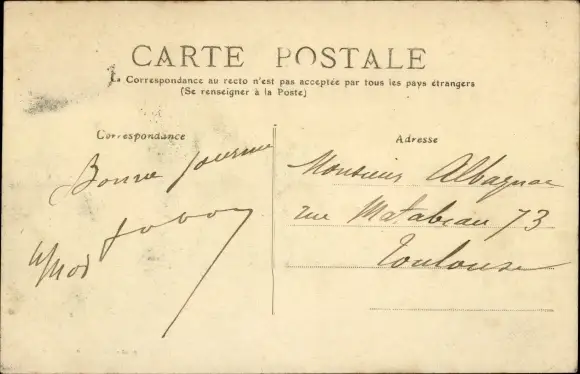 CARTE POSTALE
La Correspondance au recto n'est pas acceptée par tous les pays étrangers
(Se renseigner à la Poste)
Correspondance
Bonne journée
Adresse
Monsieur Albagnac
rue Matabiau 73
Toulouse